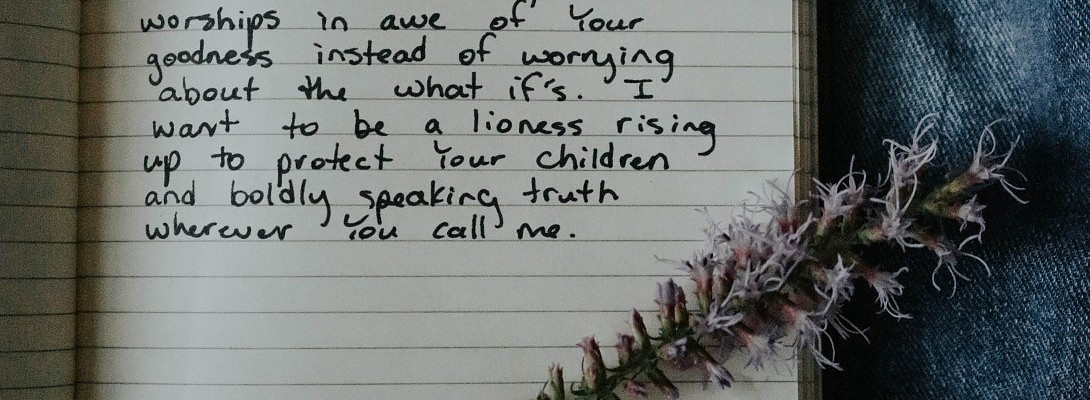 worships in awe of Your
goodness instead of worrying
about the what if's. I
want to be a lioness rising
up to protect Your children
and boldly speaking truth
wherever You call me.